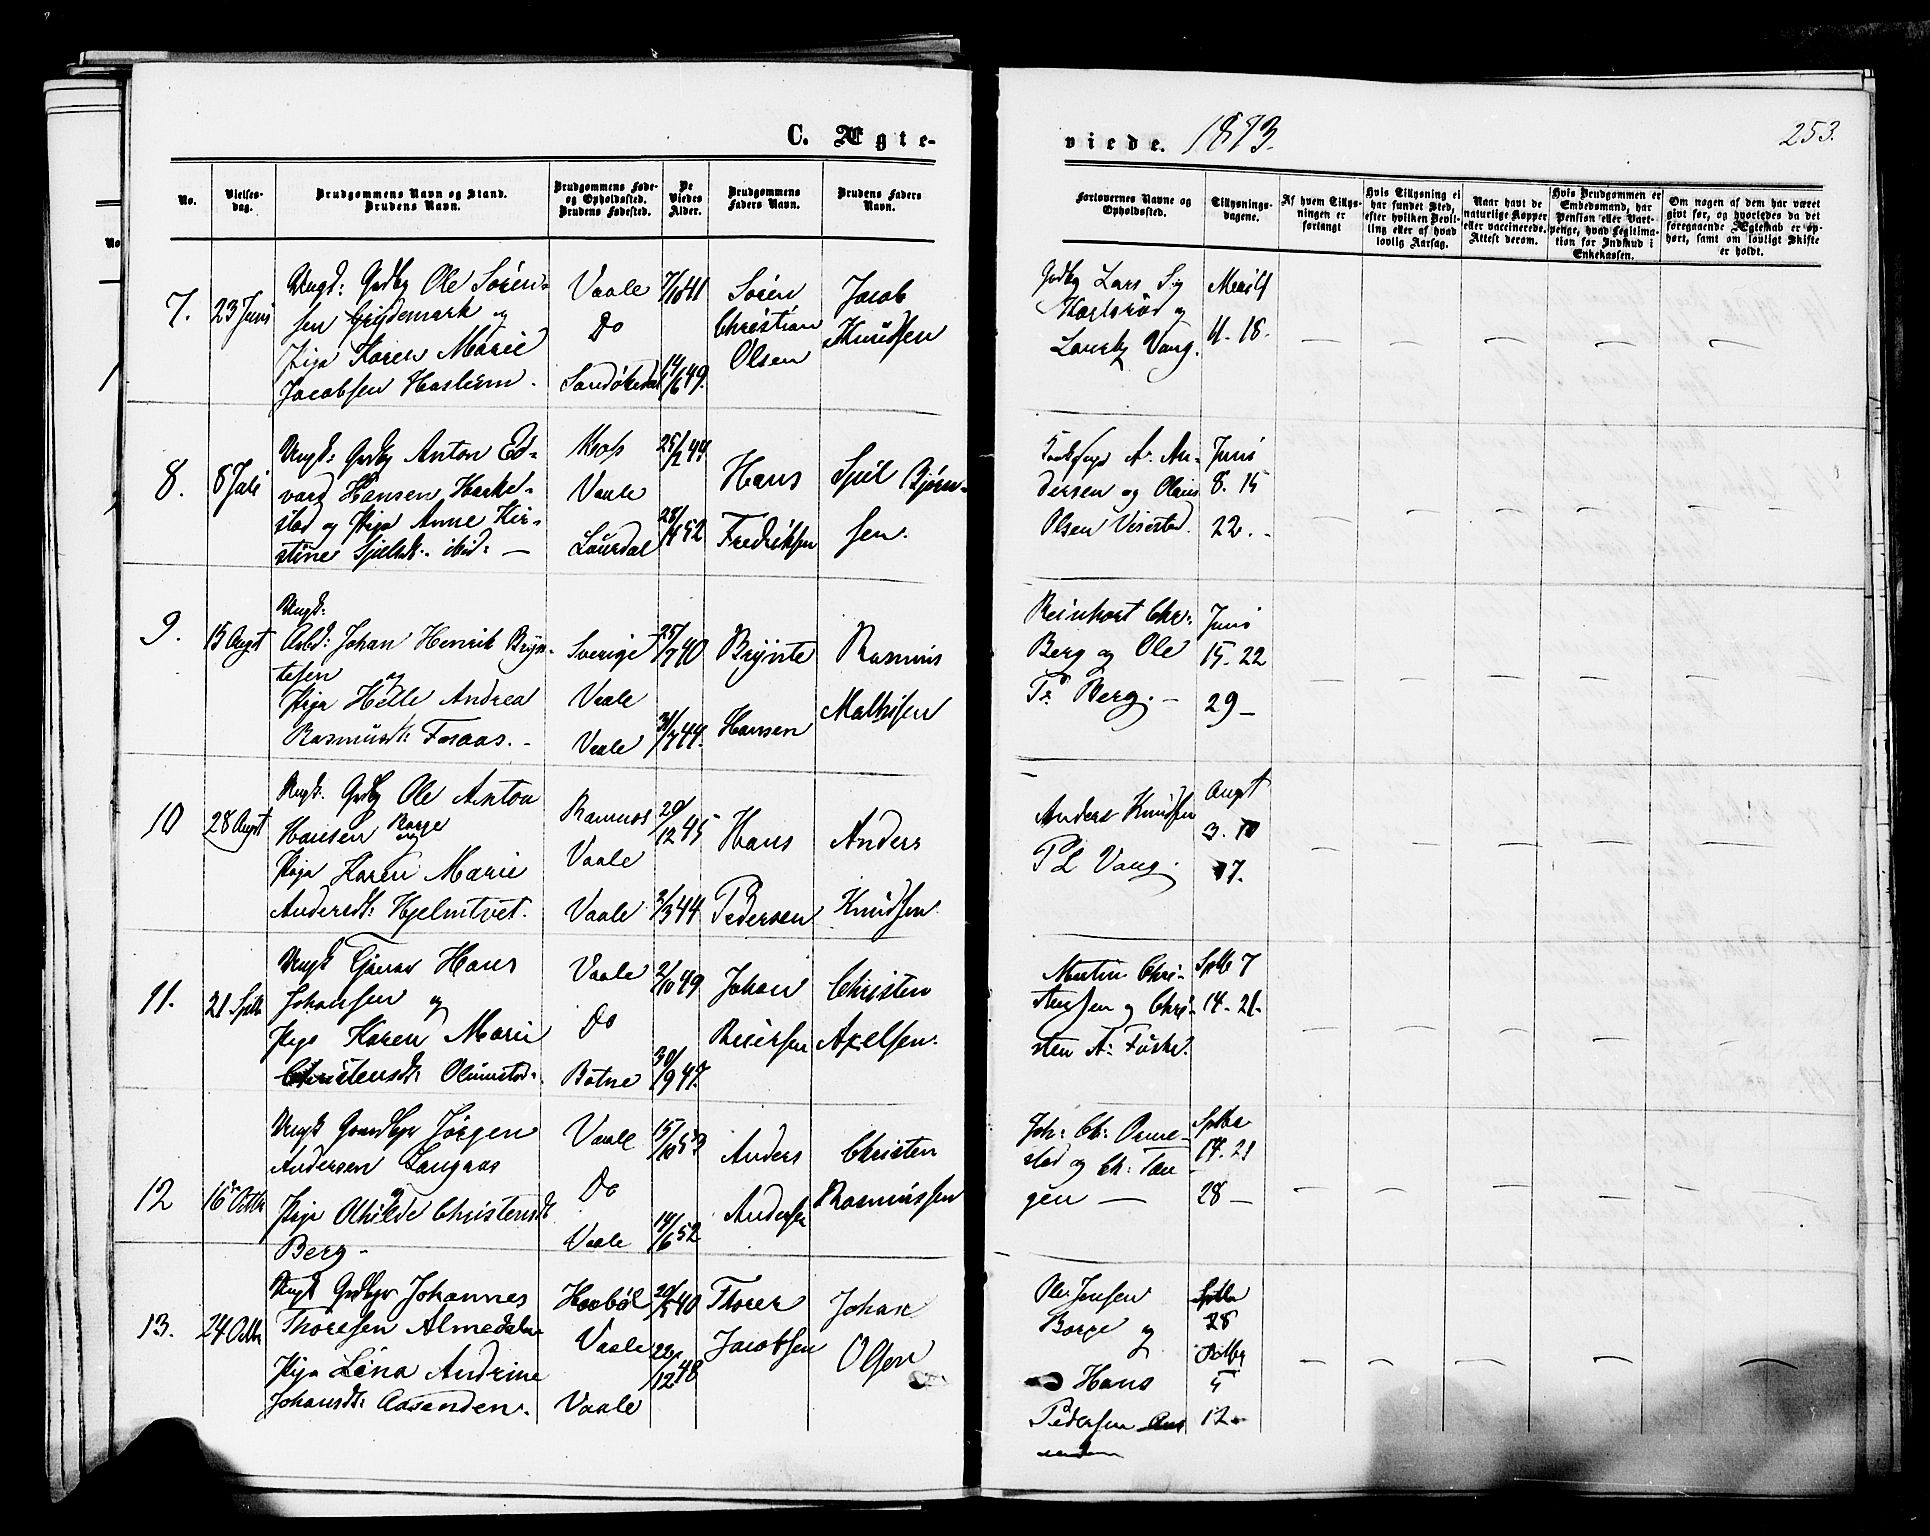 C. Ægte-
viede. 1873.
253.
No.
Vielses-
dag.
Brudgommens Navn og Stand.
Brudens Navn.
Brudgommens Føde-
og Opholdssted.
Brudens Fødested.
De
Viedes
Alder.
Brudgommens
Faders Navn.
Brudens Faders
Navn.
Forlovernes Navne og
Opholdssted.
Tillysnings-
dagene.
Af hvem Tillys-
ningen er
forlangt
Hvis Tillysning ei
har fundet Sted,
efter hvilken Bevil-
ling eller af hvad
lovlig Aarsag.
Naar havt de
naturlige Kopper
eller vaccinerede.
Attest derom.
Hvis Brudgommen er
Embedsmand, har
Pension eller Vart-
penge, hvad Legitima-
tion for Indskud i
Enkekassen.
Om nogen af dem har været
givt før, og hvorledes da det
foregaaende Ægteskab er op-
hørt, samt om lovligt Skifte
er holdt.
7.
23 Juni
Ungk: Grdbg Ole Søren-
sen og
Pige Karen Marie
Jacobsen
Vaale
Do
Sandøkedal
7/10 41
14/6 49.
Søren
Christian
Olsen
Jacob
Knudsen
Grdbg Lars
og
Vang.
11. 18.
8.
8 Juli
Ungk: Grdbg Anton Ed-
vard Hansen Harke-
stad og Pige Anne Kir-
stine ibid: —
Vaale
Laurdal
25/2 44
Hans
Fredriksen
Bjørn-
sen.
A. An-
dersen og Olaus
Olsen
Juni
8. 15
22. -
9.
15 Augt
Ungk:
Arbd: Johan Henrik Bryn-
tesen og
Pige Helle Andrea
Rasmusdt:
Sverige
Vaale
Vaale
25/7 40
31/7 44.
Brynte
Hansen
Rasmus
Mathisen
Reinhart Chr:
Berg og Ole
Berg. —
Juni
15. 22
29 —
10
28 Augt
Ungk. Grdbg Ole Anton
Hansen Borge og
Pige Karen Marie
Andersdt: Hjelmtvet.
Ramnes
Vaale
Vaale
29/12 45
2/3 44
Hans
Pedersen
Anders
Knudsen
Anders Knudsen
P L Vang.
Augt
3. 10
17.
11.
21 Sptb
Ungk Hans
Johansen og
Pige Karen Marie
Christensdt:
Vaale
Do
Botne
2/10 49
30/9 47.
Johan
Christen
Axelsen.
Martin Chri-
stensen og Chri-
sten A:
Sptb 7
14. 21-
12
16 Octb
Ungk Gaardbgr Jørgen
Andersen Langaas
Pige Othilde Christensdt
Berg -
Vaale
Do
Vaale
15/10 53
14/6 52
Anders
Andersen
Christen
Rasmussen
Joh: Ch:
stad og Ch: Tan-
gen —
Sptbr
14. 21
28 —
13.
24 Octb
Ungk Grdbgr Johannes
Thoresen Almedalen
Pige Lina Andrine
Johansdt: Aasenden.
Hoebøl
Vaale
Vaale
40
22/12 48
Thorer
Jacobsen
Johan
Olsen
Ole Jensen
Borge og
Hans
Pedersen Aas
enden
Sptbr
28
Octbr
5
12-